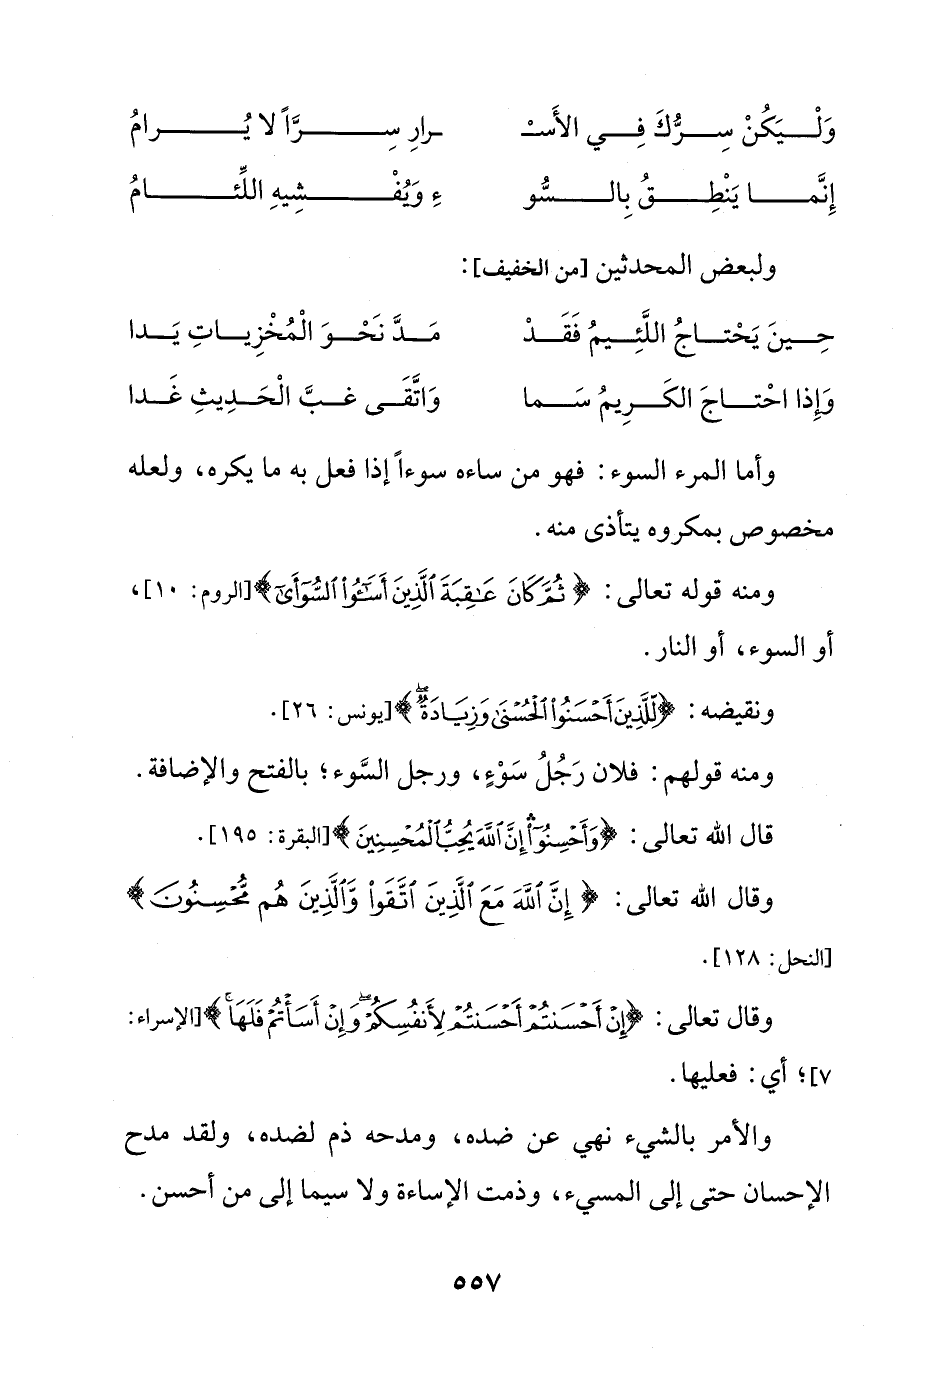 وَلْيَكُنْ سِرُّكَ فِي الأَسْـ ـرارِ سِرَّاً لا يُرامُ
إِنَّما يَنْطِقُ بِالسُّو ءِ وَيُفْشِيهِ اللِّئامُ
ولبعض المحدثين [من الخفيف]:
حِينَ يَحْتاجُ اللَّئِيمُ فَقَدْ مَدَّ نَحْوَ الْمُخْزِياتِ يَدا
وَإِذا احْتاجَ الكَرِيمُ سَما وَاتَّقَى غبَّ الْحَدِيثِ غَدا
وأما المرء السوء: فهو من ساءه سوءاً إذا فعل به ما يكره، ولعله
مخصوص بمكروه يتأذى منه.
ومنه قوله تعالى: ﴿ثُمَّ كَانَ عَٰقِبَةَ ٱلَّذِينَ أَسَٰٓـُٔوا۟ ٱلسُّوٓأَىٰٓ﴾[الروم: ١٠]،
أو السوء، أو النار.
ونقيضه: ﴿لِّلَّذِينَ أَحْسَنُوا۟ ٱلْحُسْنَىٰ وَزِيَادَةٌۖ﴾[يونس: ٢٦].
ومنه قولهم: فلان رَجُلُ سَوْءٍ، ورجل السَّوء؛ بالفتح والإضافة.
قال الله تعالى: ﴿وَأَحْسِنُوٓا۟ۛ إِنَّ ٱللَّهَ يُحِبُّ ٱلْمُحْسِنِينَ﴾[البقرة: ١٩٥].
وقال الله تعالى: ﴿إِنَّ ٱللَّهَ مَعَ ٱلَّذِينَ ٱتَّقَوا۟ وَّٱلَّذِينَ هُم مُّحْسِنُونَ﴾
[النحل: ١٢٨].
وقال تعالى: ﴿إِنْ أَحْسَنتُمْ أَحْسَنتُمْ لِأَنفُسِكُمْۖ وَإِنْ أَسَأْتُمْ فَلَهَاۚ﴾[الإسراء:
٧]؛ أي: فعليها.
والأمر بالشيء نهي عن ضده، ومدحه ذم لضده، ولقد مدح
الإحسان حتى إلى المسيء، وذمت الإساءة ولا سيما إلى من أحسن.
٥٥٧